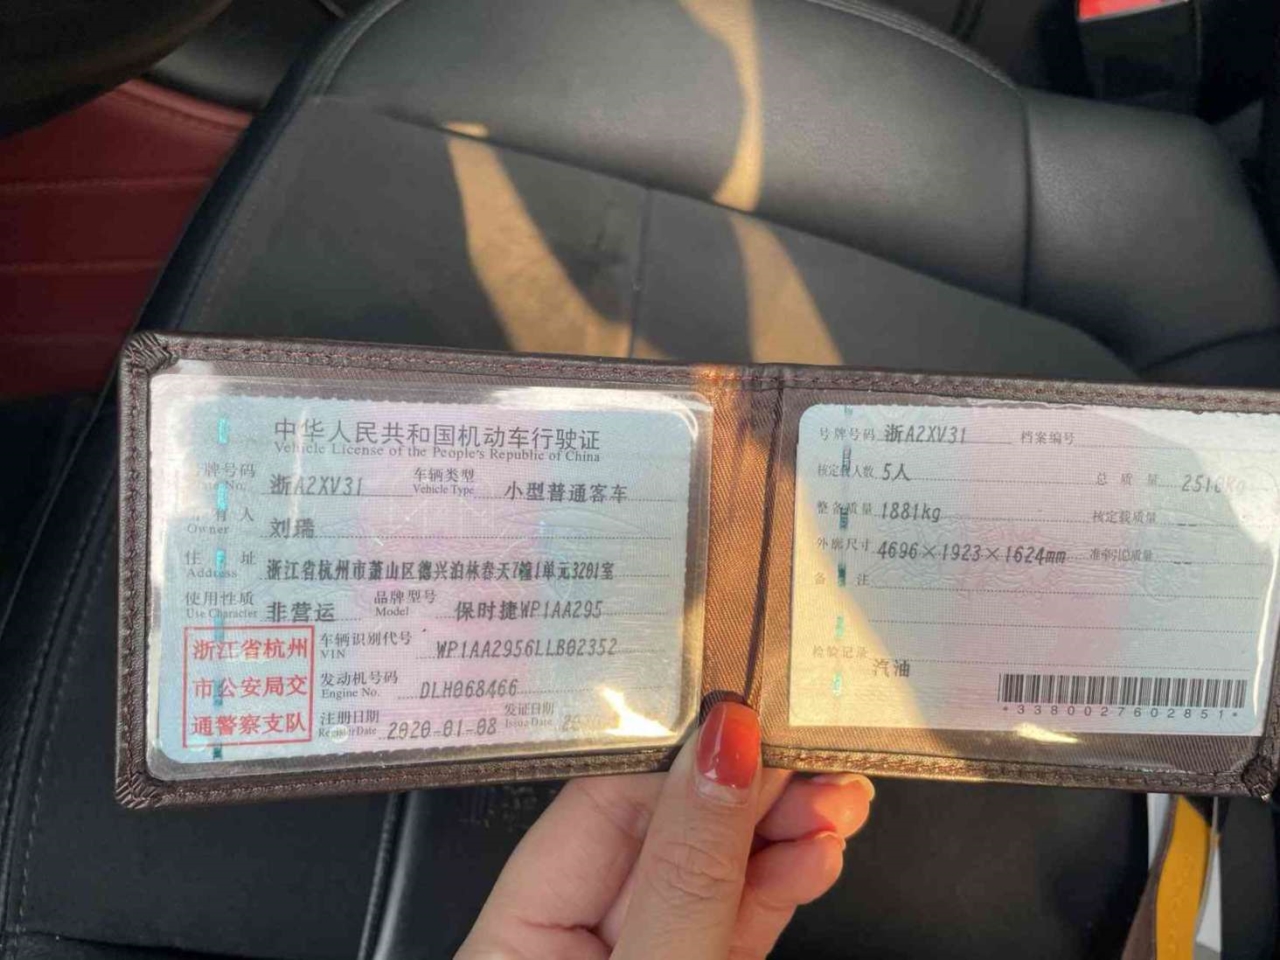 中华人民共和国机动车行驶证
Vehicle License of the People's Republic of China
牌号码 浙A2XV31 车辆类型 小型普通客车
No. Vehicle Type
人 刘瑞
Owner
住 址 浙江省杭州市萧山区德兴泊林春天7幢1单元3201室
Address
使用性质 非营运 品牌型号 保时捷WP1AA295
Use Character Model
浙江省杭州
市公安局交
通警察支队
车辆识别代号 WP1AA2956LLB02352
VIN
发动机号码 DLH068466
Engine No.
注册日期 2020-01-08 发证日期
Register Date Issue Date
号牌号码 浙A2XV31 档案编号
核定载人数 5人 总质量
整备质量 1881kg 核定载质量 --
外廓尺寸 4696×1923×1624mm 准牵引总质量 --
备 注
检验记录 汽油
*3380027602851*